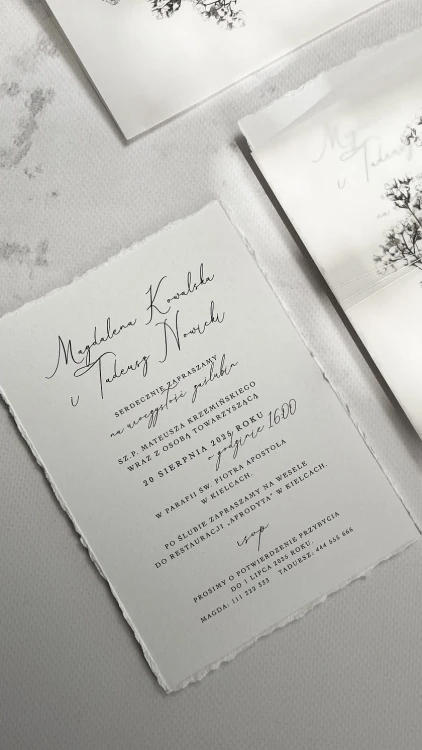 Magdalena Kowalska
i Tadeusz Nowicki
SERDECZNIE ZAPRASZAMY
na uroczystość zaślubin
SZ.P. MATEUSZA KRZEMIŃSKIEGO
WRAZ Z OSOBĄ TOWARZYSZĄCĄ
20 SIERPNIA 2025 ROKU
o godzinie 16:00
W PARAFII ŚW. PIOTRA APOSTOŁA
W KIELCACH.
PO ŚLUBIE ZAPRASZAMY NA WESELE
DO RESTAURACJI „AFRODYTA" W KIELCACH.
rsvp
PROSIMY O POTWIERDZENIE PRZYBYCIA
DO 1 LIPCA 2025 ROKU.
MAGDA: 111 222 333 TADEUSZ: 444 555 666